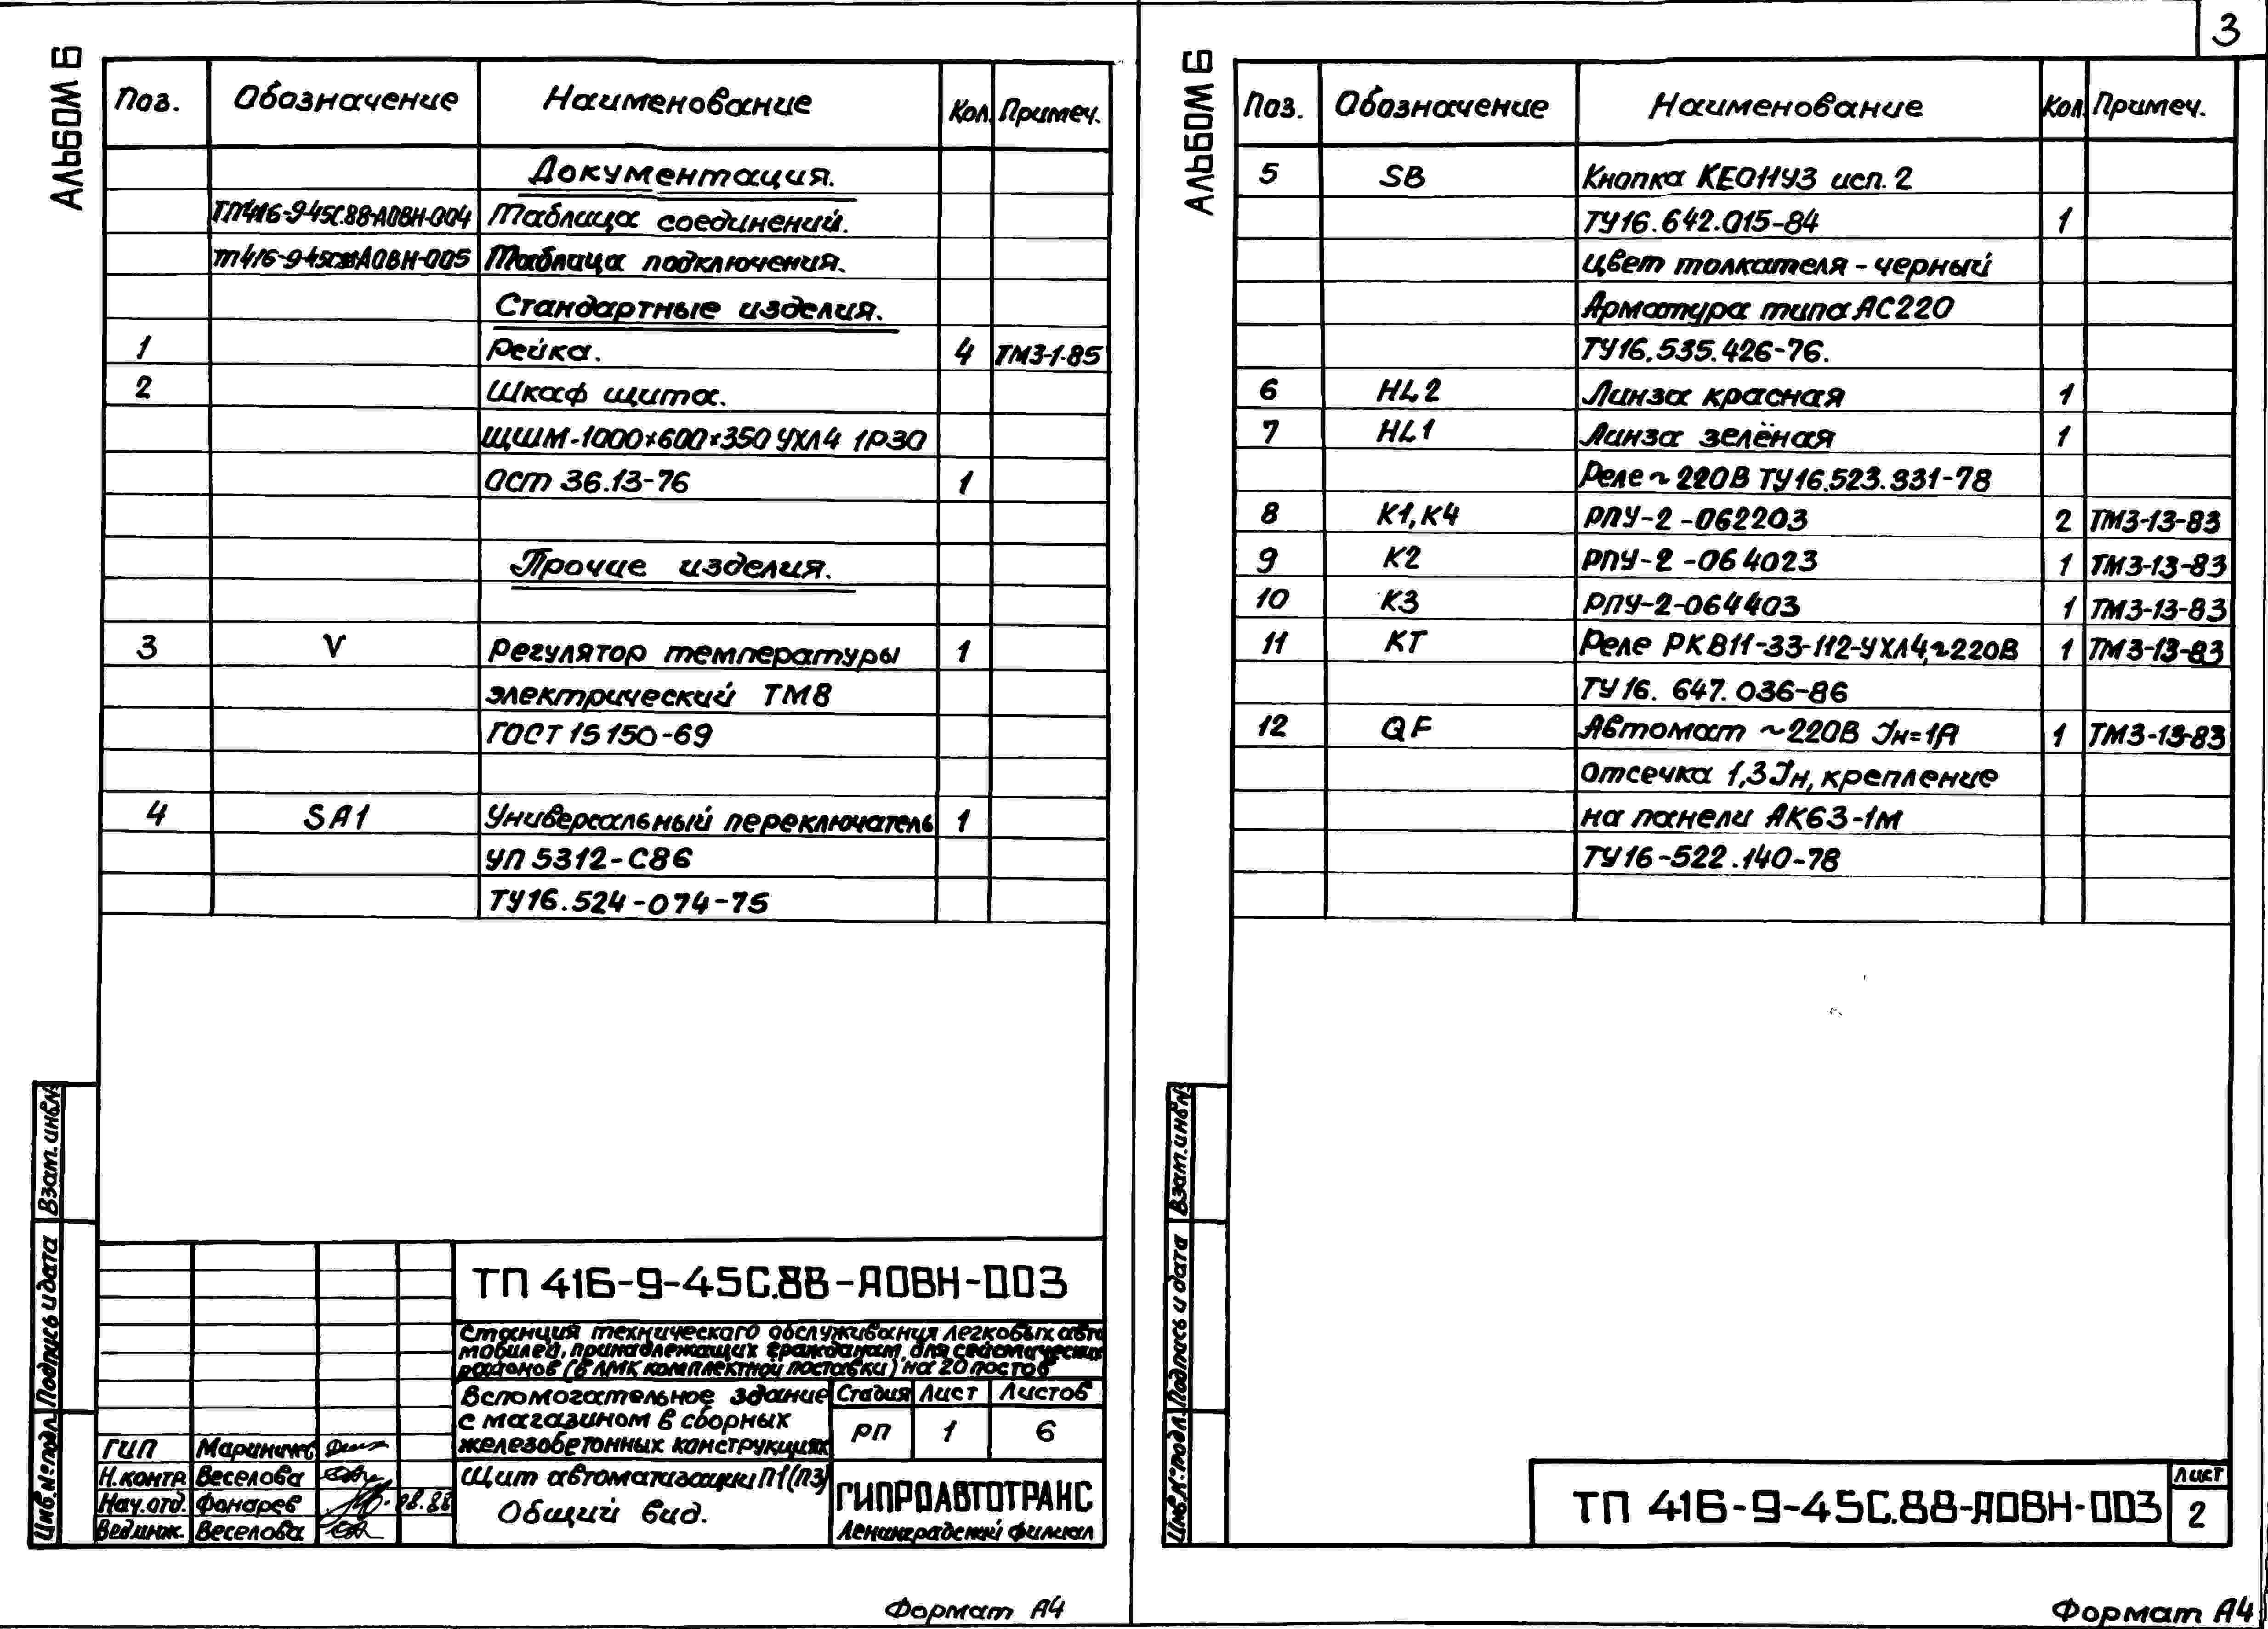 3
АЛЬБОМ 6
Поз. Обозначение Наименование Кол. Примеч.
Документация.
ТП416-9-45С.88-АОВН-004 Таблица соединений.
ТП416-9-45С.88-АОВН-005 Таблица подключения.
Стандартные изделия.
1 Рейка. 4 ТМ3-1-85
2 Шкаф щита.
ЩШМ-1000×600×350 УХЛ4 1Р30
ОСТ 36.13-76 1
Прочие изделия.
3 V Регулятор температуры 1
электрический ТМ8
ГОСТ 15150-69
4 SA1 Универсальный переключатель 1
УП 5312-С86
ТУ16.524-074-75
Взам. инв.№
Подпись и дата
Инв.№ подл.
ТП 416-9-45С.88-АОВН-003
Станция технического обслуживания легковых авто
мобилей, принадлежащих гражданам, для сейсмических
районов (в ЛМК комплектной поставки) на 20 постов
Вспомогательное здание
с магазином в сборных
железобетонных конструкциях
Стадия Лист Листов
РП 1 6
ГИП
Н.контр. Веселова
Нач.отд. Фонарев
Вед.инж. Веселова
Щит автоматизации П1(П3)
Общий вид.
ГИПРОАВТОТРАНС
Ленинградский филиал
Формат А4
АЛЬБОМ 6
Поз. Обозначение Наименование Кол. Примеч.
5 SB Кнопка КЕ011У3 исп. 2
ТУ16.642.015-84 1
цвет толкателя - черный
Арматура типа АС220
ТУ16.535.426-76.
6 HL2 Линза красная 1
7 HL1 Линза зелёная 1
Реле ~ 220В ТУ16.523.331-78
8 К1, К4 РПУ-2-062203 2 ТМ3-13-83
9 К2 РПУ-2-064023 1 ТМ3-13-83
10 К3 РПУ-2-064403 1 ТМ3-13-83
11 КТ Реле РКВ11-33-112-УХЛ4, ~220В 1 ТМ3-13-83
ТУ16. 647. 036-86
12 QF Автомат ~220В Iн=1А 1 ТМ3-13-83
отсечка 1,3 Iн, крепление
на панели АК63-1М
ТУ16-522.140-78
Взам. инв.№
Подпись и дата
Инв.№ подл.
ТП 416-9-45С.88-АОВН-003
Лист
2
Формат А4